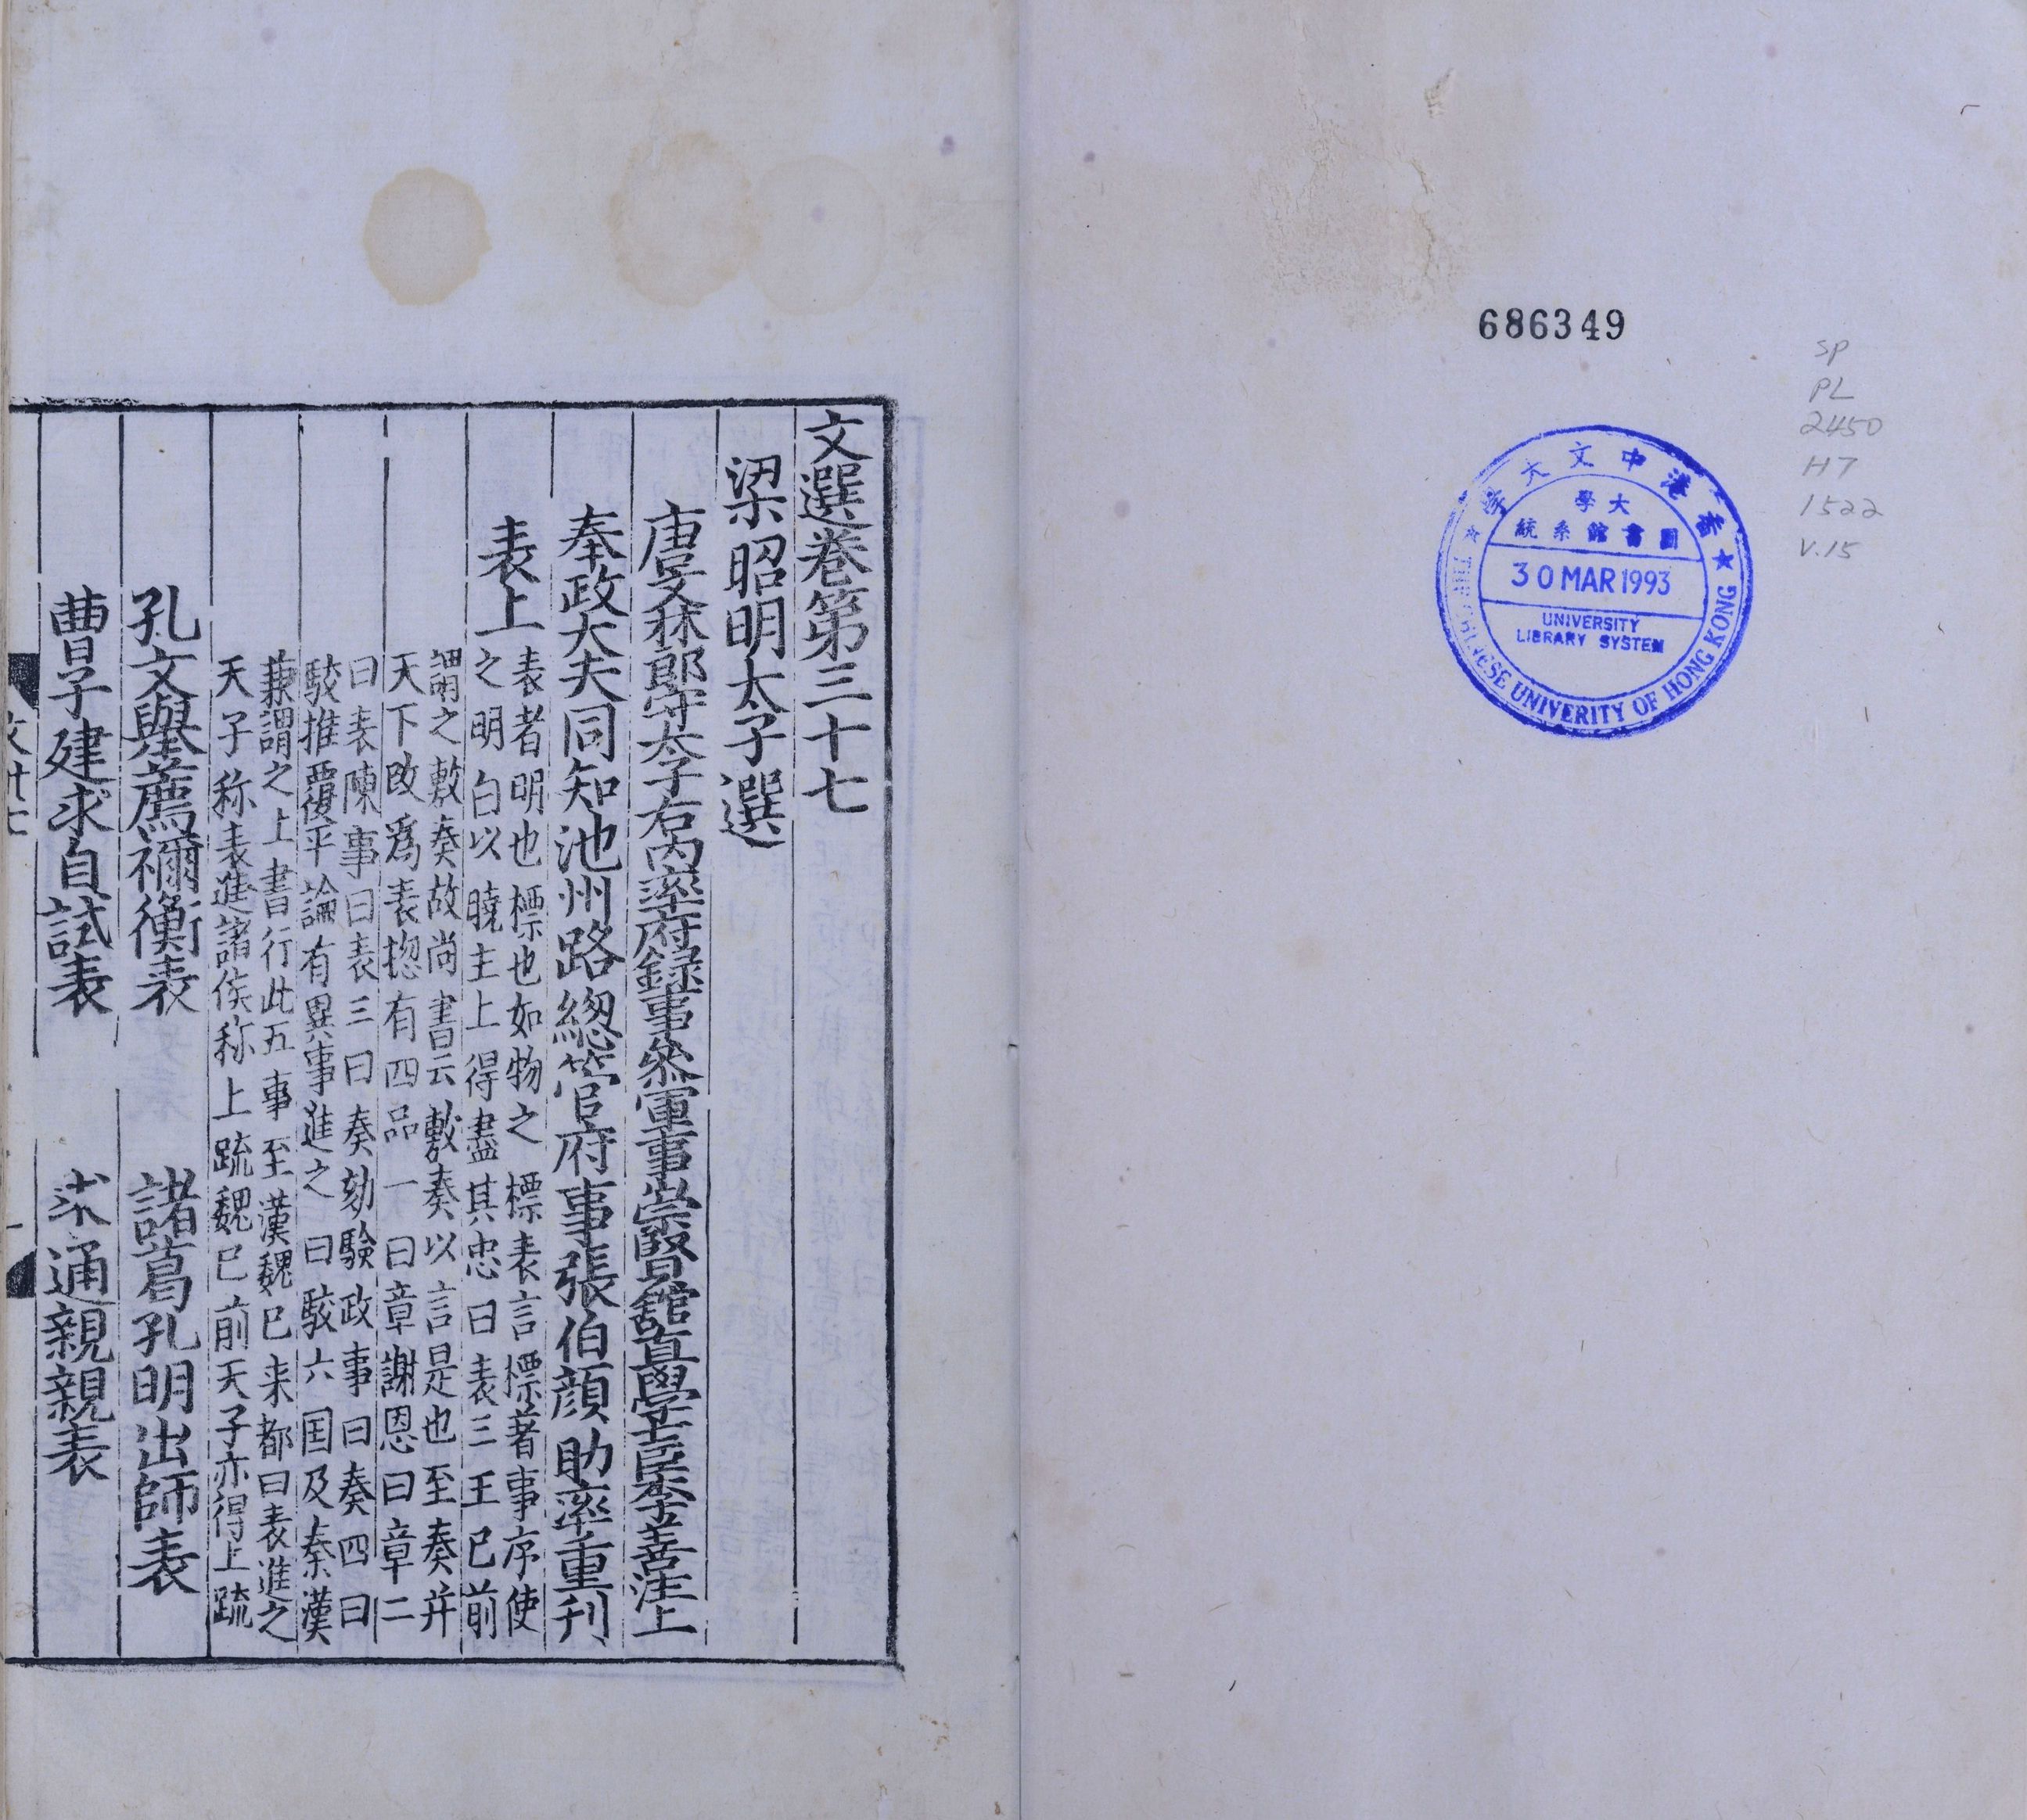 文選卷第三十七
梁昭明太子選
唐文林郎守太子右內率府錄事參軍事崇賢館直學士臣李善注上
奉政大夫同知池州路總管府事張伯顔助率重刊
表上
表者明也標也如物之標表言標著事序使
之明白以曉主上得盡其忠曰表三王已前
謂之敷奏故尚書云敷奏以言是也至秦并
天下改爲表揔有四品一曰章謝恩曰章二
曰表陳事曰表三曰奏劾驗政事曰奏四曰
駮推覆平論有異事進之曰駮六国及秦漢
兼謂之上書行此五事至漢魏已来都曰表進之
天子称表進諸侯称上疏魏已前天子亦得上疏
孔文舉薦禰衡表
諸葛孔明出師表
曹子建求自試表
求通親親表
文卅七
一
686349
SP
PL
2450
H7
1522
V.15
香港中文大學
大學
圖書館系統
30 MAR 1993
UNIVERSITY
LIBRARY SYSTEM
THE CHINESE UNIVERITY OF HONG KONG